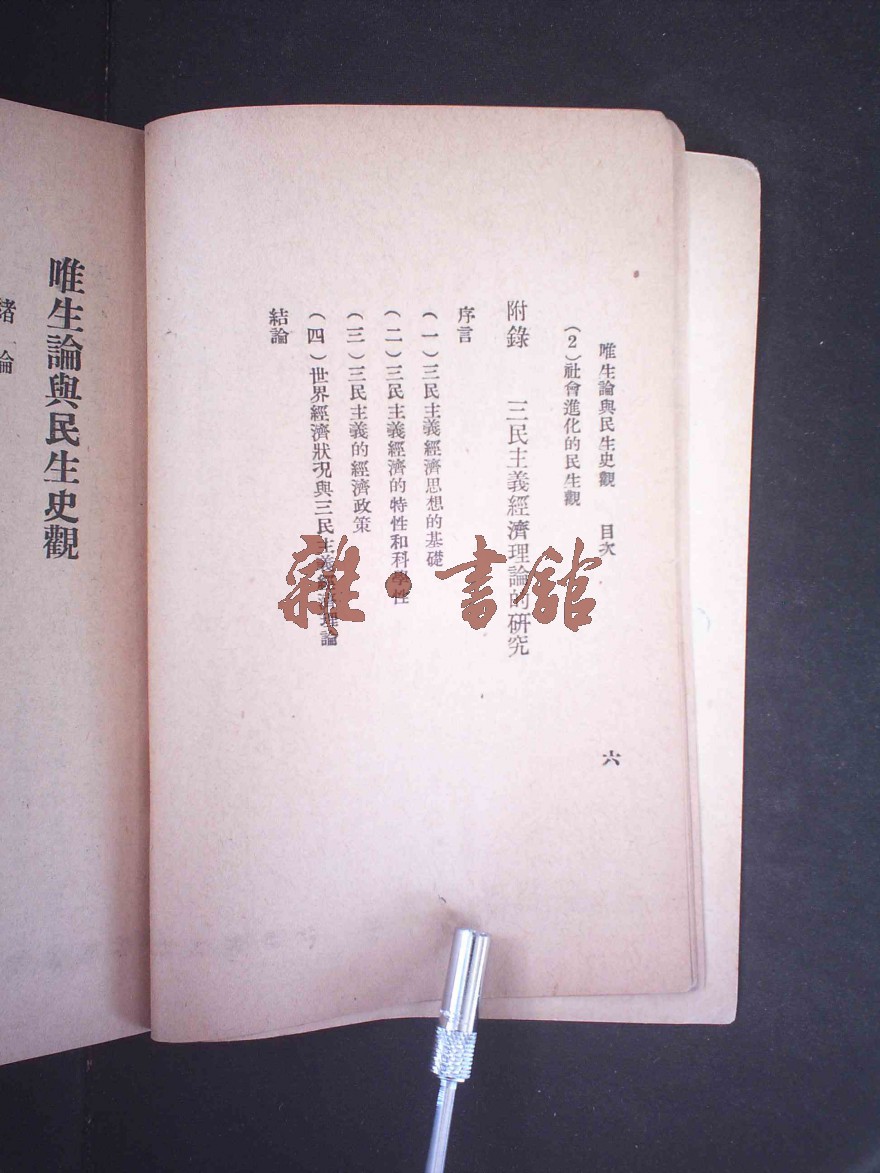 唯生論與民生史觀　目次
六
(2)社會進化的民生觀
附錄　三民主義經濟理論的研究
序言
(一)三民主義經濟思想的基礎
(二)三民主義經濟的特性和科學性
(三)三民主義的經濟政策
(四)世界經濟狀況與三民主義經濟理論
結論
唯生論與民生史觀
緒論
雜·書館